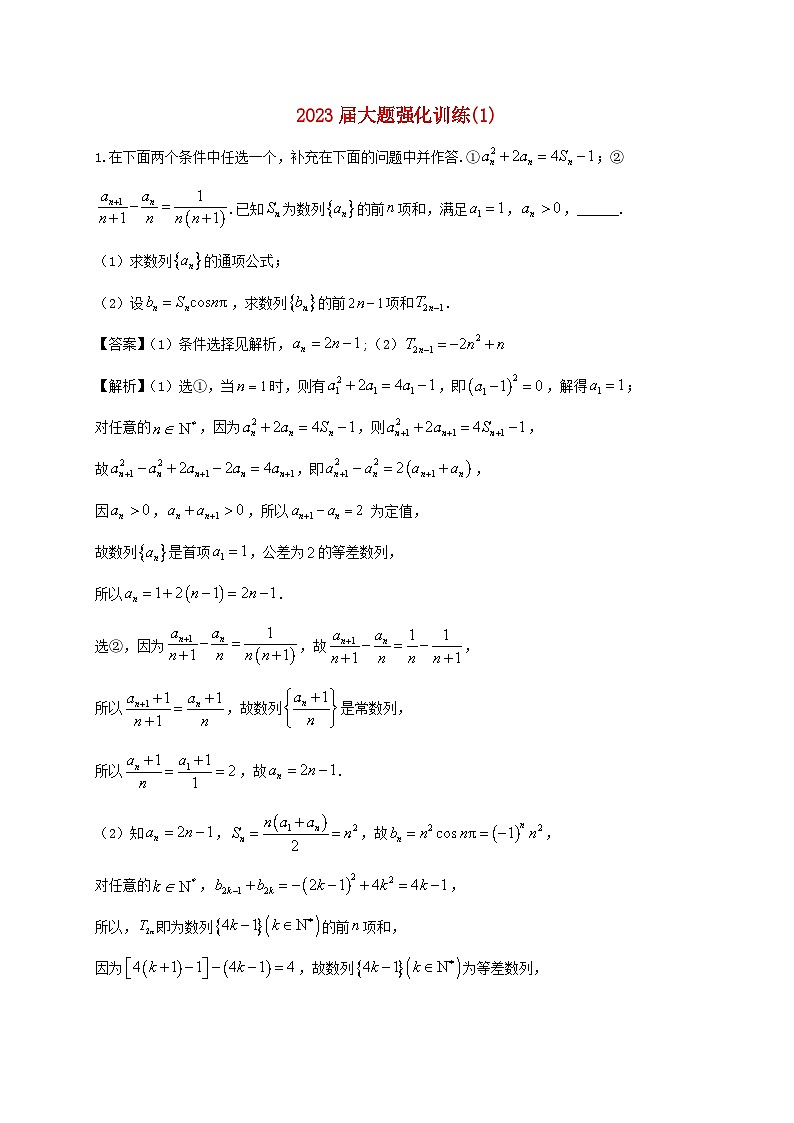 2023届大题强化训练(1)
1.在下面两个条件中任选一个，补充在下面的问题中并作答.①$a_n^2+2a_n=4S_n-1$;②
$\frac{a_{n+1}}{n+1}-\frac{a_n}{n}=\frac{1}{n(n+1)}$.已知$S_n$为数列$\{a_n\}$的前$n$项和，满足$a_1=1$，$a_n>0$，______.
（1）求数列$\{a_n\}$的通项公式；
（2）设$b_n=S_n\cos n\pi$，求数列$\{b_n\}$的前$2n-1$项和$T_{2n-1}$.
【答案】（1）条件选择见解析，$a_n=2n-1$；（2）$T_{2n-1}=-2n^2+n$
【解析】（1）选①，当$n=1$时，则有$a_1^2+2a_1=4a_1-1$，即$(a_1-1)^2=0$，解得$a_1=1$；
对任意的$n\in\mathrm{N}^*$，因为$a_n^2+2a_n=4S_n-1$，则$a_{n+1}^2+2a_{n+1}=4S_{n+1}-1$，
故$a_{n+1}^2-a_n^2+2a_{n+1}-2a_n=4a_{n+1}$，即$a_{n+1}^2-a_n^2=2(a_{n+1}+a_n)$，
因$a_n>0$，$a_n+a_{n+1}>0$，所以$a_{n+1}-a_n=2$ 为定值，
故数列$\{a_n\}$是首项$a_1=1$，公差为2的等差数列，
所以$a_n=1+2(n-1)=2n-1$.
选②，因为$\frac{a_{n+1}}{n+1}-\frac{a_n}{n}=\frac{1}{n(n+1)}$，故$\frac{a_{n+1}}{n+1}-\frac{a_n}{n}=\frac{1}{n}-\frac{1}{n+1}$，
所以$\frac{a_{n+1}+1}{n+1}=\frac{a_n+1}{n}$，故数列$\left\{\frac{a_n+1}{n}\right\}$是常数列，
所以$\frac{a_n+1}{n}=\frac{a_1+1}{1}=2$，故$a_n=2n-1$.
（2）知$a_n=2n-1$，$S_n=\frac{n(a_1+a_n)}{2}=n^2$，故$b_n=n^2\cos n\pi=(-1)^n n^2$，
对任意的$k\in\mathrm{N}^*$，$b_{2k-1}+b_{2k}=-(2k-1)^2+4k^2=4k-1$，
所以，$T_{2n}$即为数列$\{4k-1\}(k\in\mathrm{N}^*)$的前$n$项和，
因为$[4(k+1)-1]-(4k-1)=4$，故数列$\{4k-1\}(k\in\mathrm{N}^*)$为等差数列，